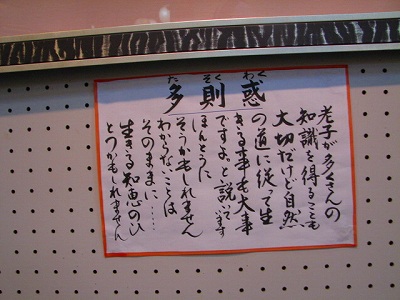 た そく わく
多則惑
老子が多くさんの
知識を得ることも
大切だけど自然
の道に従て生
きる事も大事
ですよ。と説いています
ほんとうに
そうかもしれません
わからないことは
そのままに……
生きる知恵のひ
とつかもしれません